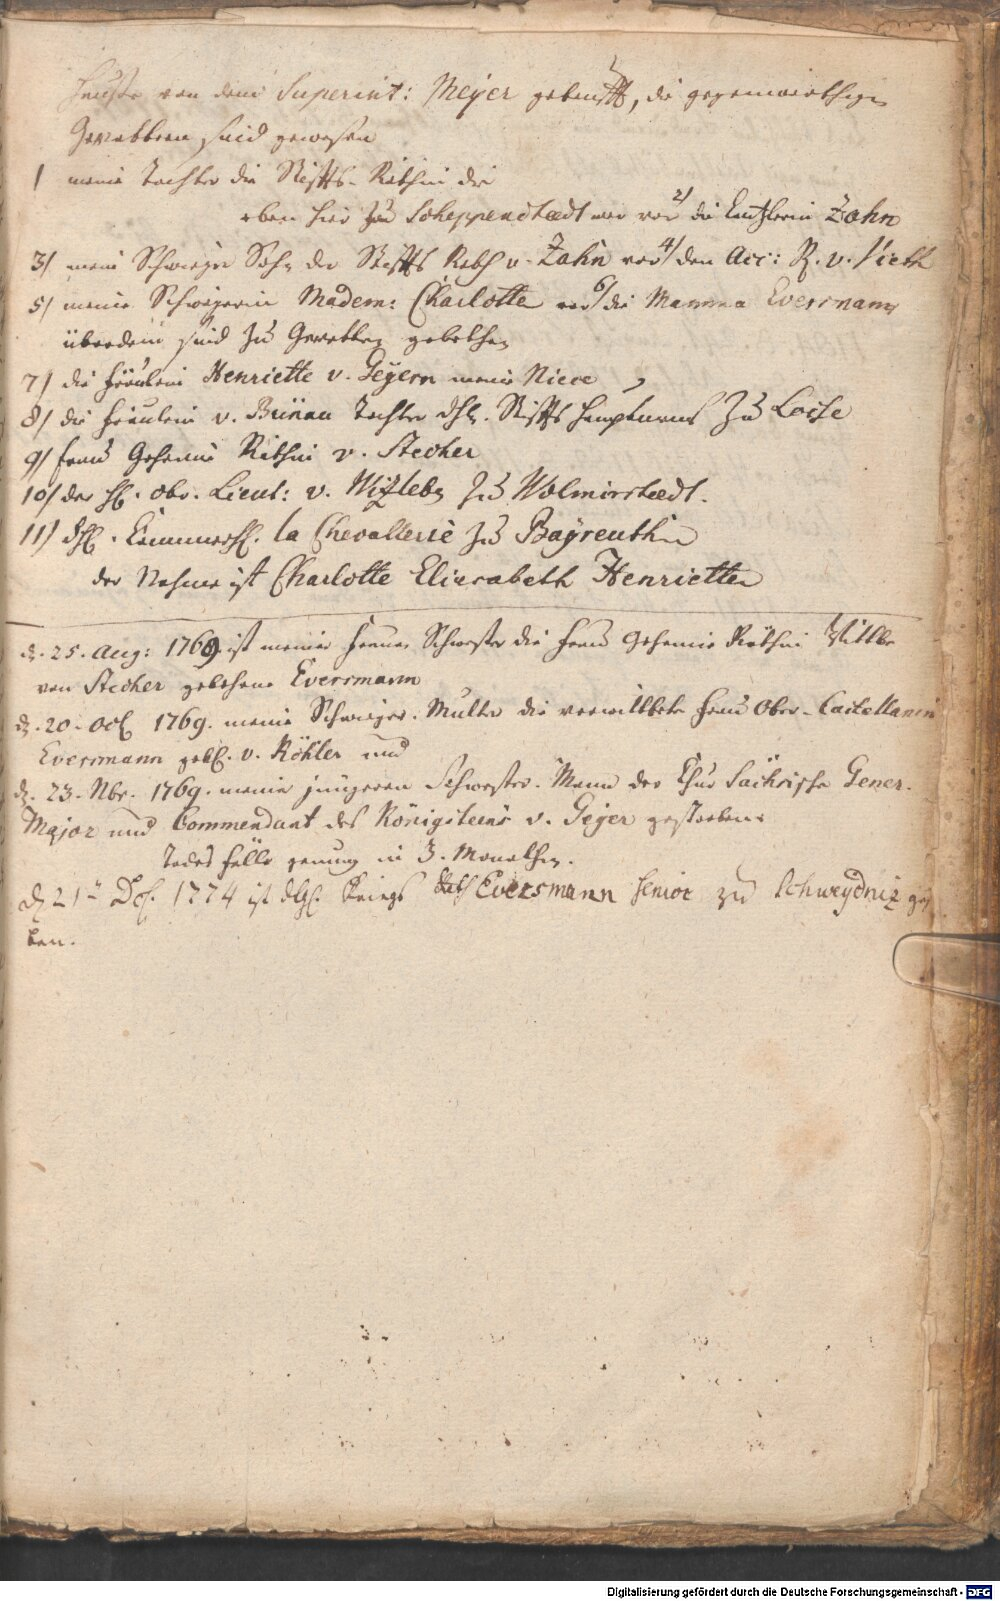 Hauße von dem Superint: Meyer getaufft, die gegenwärthige
Gevattern sind gewesen
1 meine Tochter die Stiffts-Räthin die
eben hier zu Scheppenstedt war 2/ die Zahn
3/ mein Schwieger Sohn der Stiffts Rath v. Zahn 4/ den Acc: R. v. Vieth
5/ meine Schwägerin Madem: Charlotte 6/ die Mamma Eversmann
überdem sind zu Gevatter gebethen
7/ die Fräulein Henriette v. Geyern meine Niece
8/ die Fräulein v. Bünau Tochter Stiffts zu Loite
9/ Frau Geheime Räthin v. Stecher
10/ der H. obr. Lieut: v. Wizleben zu Wolmirstaedt.
11/ H. Cammerh. la Chevallerie zu Bayreuth
der Nahme ist Charlotte Eliesabeth Henriette
d. 25. Aug: 1769 ist meiner Frauen Schwester die Frau Geheime Räthin Wittbe
von Stecher gebohrne Eversmann
d. 20. Oct 1769. meine Schwieger-Mutter die verwittbete Frau Ober-Castellanin
Eversmann geb. v. Köhler und
d. 23. Nbr. 1769. meiner jüngeren Schwester-Mann der Chur Sächsische Gener.
Major und Commendant des Königsteins v. Geyer gestorben.
Todes Fälle genung in 3. Monathen.
d 21 Dc. 1774 ist Kriegs Rath Eversmann senior zu Schweydniz
ben.
Digitalisierung gefördert durch die Deutsche Forschungsgemeinschaft - DFG